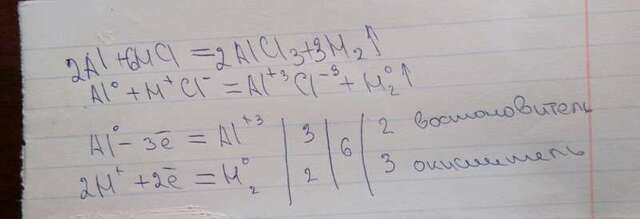 2Al + 6HCl = 2AlCl₃ + 3H₂↑
Al⁰ + H⁺Cl⁻ = Al⁺³Cl⁻³ + H₂⁰↑
Al⁰ - 3ē = Al⁺³ | 3 | 6 | 2 восстановитель
2H⁺ + 2ē = H₂⁰ | 2 | | 3 окислитель